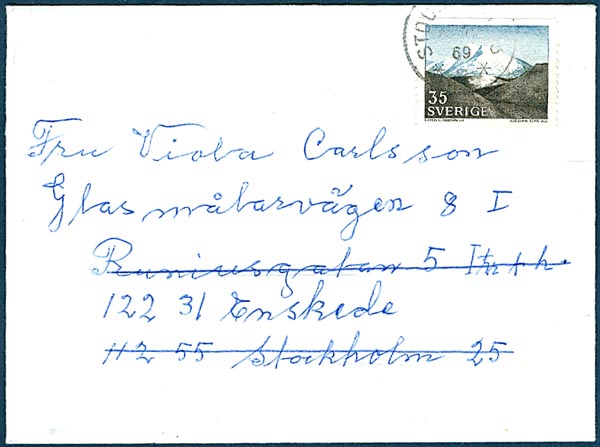 STOC
69
35
SVERIGE
Fru Viola Carlsson
Glasmålarvägen 8 I
Runiusgatan 5 I
122 31 Enskede
112 55 Stockholm 25